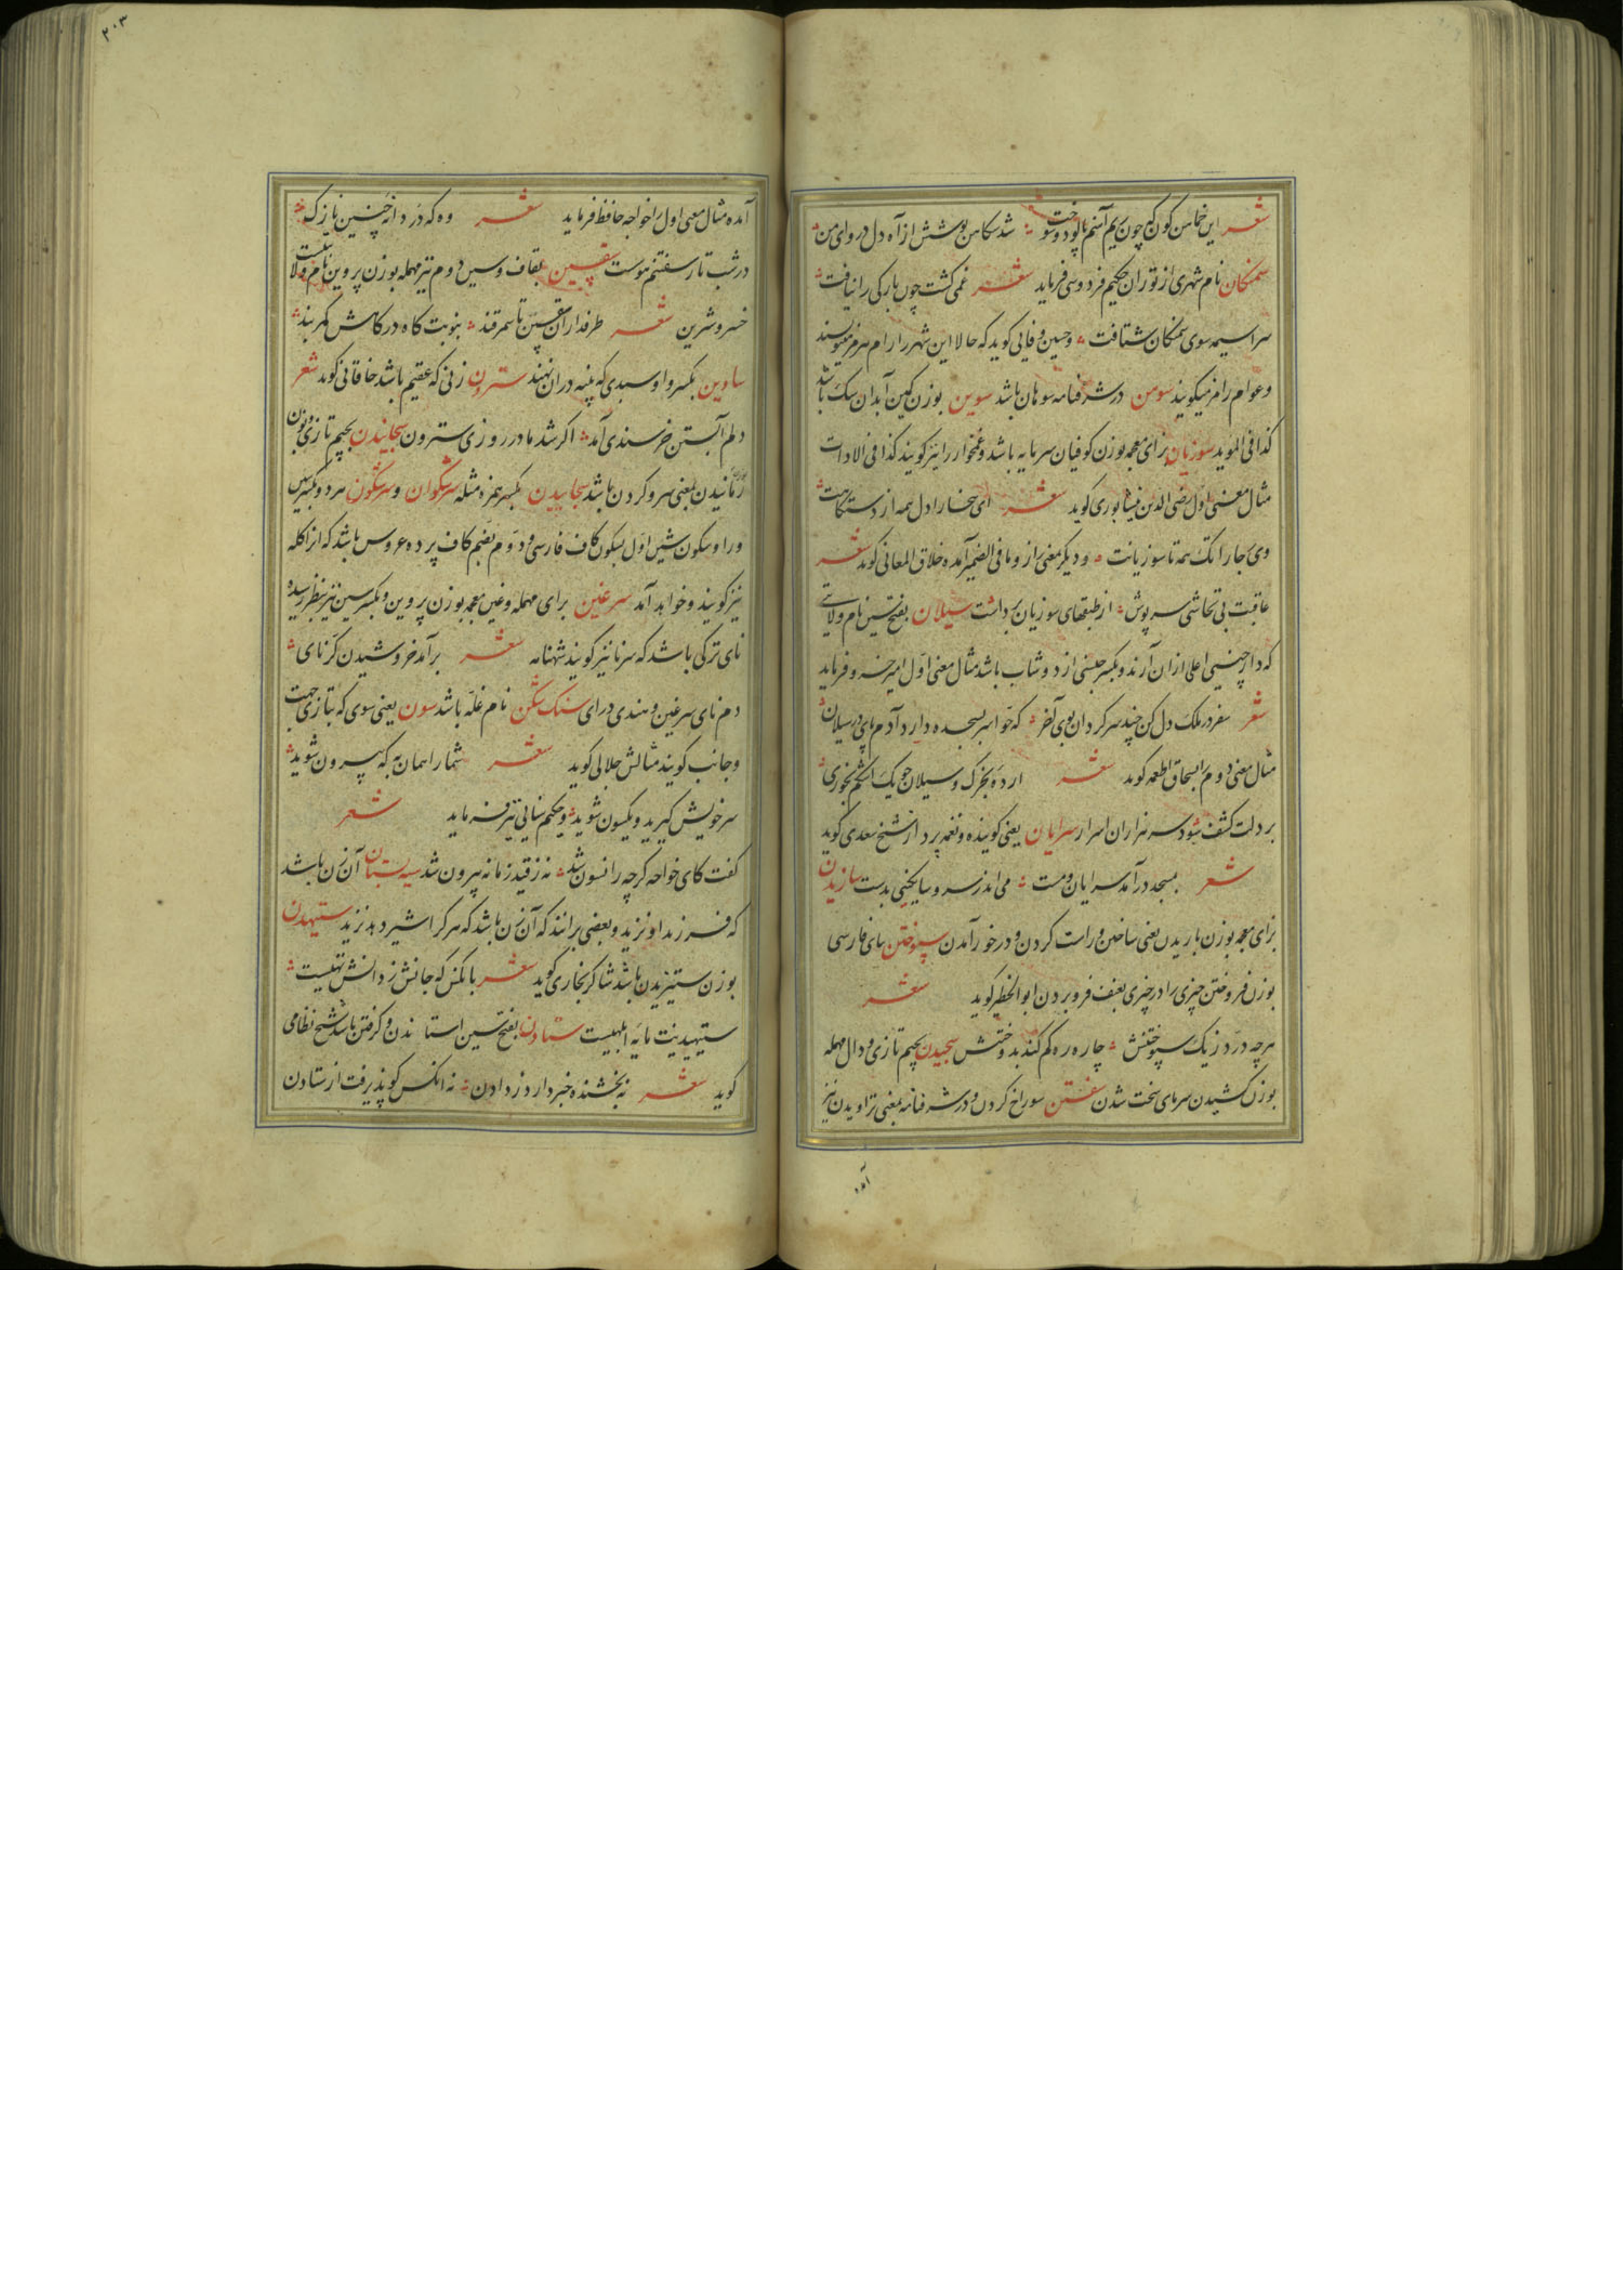 شعر این خماهن کون که چون ریم آهنم پالود و سوخت شد سکاهن پوشش از آه دل دروای من
سمنکان نام شهری از توران حکیم فردوسی فرماید شعر غمی کشت چون بارکی را نیافت
سراسیمه سوی سمنکان شتافت و حسین وفایی کوید که حالا این شهر را رام هرمز مینویسند
و عوام رامز میکویند سومن در شرفنامه سوهان باشد سوین بوزن کمین آبدان سک باشد
کذا فی الموید سوزیان بزای معجمه بوزن کوفیان سرمایه باشد و غمخوار را نیز کویند کذا فی الادات
مثال معنی اول رضی الدین نیشابوری کوید شعر ای سخا را دل همه از دستکاهت
وی رجا را تک همه تا سوزیانت و دیکر معنی راز و ما فی الضمیر آمده خلاق المعانی کوید شعر
عاقبت بی تحاشی سرپوش از طبقهای سوزیان برداشت سیلان بفتح سین نام ولایتی
که دارچینی اعلی از ان آرند و بکسر جنسی از دوشاب باشد مثال معنی اول امیر خسرو فرماید
شعر سفر در ملک دل کن چند سر کردان بوی آخر که خواهر بسجده دارد آدم پای در سیلان
مثال معنی دوم را بسحاق اطعمه کوید شعر ارده و بخرک و سیلان چو یک اشکم بخوری
بر دلت کشف شود سر هزاران اسرار سرایان یعنی کوینده و نغمه پرداز شیخ سعدی کوید
شعر بمسجد درآمد سرایان و مست می اندر سر و ساتکینی بدست سازیدن
بزای معجمه بوزن باریدن یعنی ساختن و راست کردن و در خور آمدن سپوختن ببای فارسی
بوزن فروختن چیزی را در چیزی بعنف فرو بردن ابوالخطیر کوید شعر
هر چه درد زیک سپوختنش چاره ره کم کند بدوختنش سجیدن بجیم تازی و دال مهمله
بوزن کشیدن سرمای سخت شدن سفتن سوراخ کردن و در شرفنامه بمعنی تراویدن نیز
آمده
۲۰۳
آمده مثال معنی اول را خواجه حافظ فرماید شعر وه که دردانه چنین نازک
در شب تار سفتنم هوست سقسین بقاف و سین دوم نیز مهمله بوزن پروین نام ولایتیست
خسرو شیرین شعر طرفداران سقسین تا سمرقند بنوبت کاه درکاهش کمربند
ساوین بکسر واو سبدی که پنبه دران نهند سترون زنی که عقیم باشد خاقانی کوید شعر
دلم آبستن خرسندی آمد اکر شد مادر روزی سترون سجانیدن بجیم تازی بوزن
رمانیدن بمعنی سرد کردن باشد سجاییدن بکسر همزه مثله سرشکوان و سرشکون هر دو بکسر سین
و را و سکون شین اول بسکون کاف فارسی و دوم بضم کاف پرده عروس باشد که انرا کله
نیز کویند و خواهد آمد سرغین برای مهمله و غین معجمه بوزن پروین و بکسر سین نیز بنظر رسیده
نای ترکی باشد که سرنا نیز کویند شهنامه شعر برآمد خروشیدن کرنای
دم نای سرغین و هندی درای سنک شکن نام غله باشد سون یعنی سوی که بتازی جهت
و جانب کویند مثالش جلالی کوید شعر شما را همان به که بیرون شوید
سر خویش کیرید و یکسون شوید و حکیم سنایی نیز فرماید شعر
کفت کای خواجه کرچه زانسون شد نه ز قید زمانه بیرون شد سیه پستان آن زن باشد
که فرزند او نزید و بعضی برانند که آن زن باشد که هر کرا شیر دهد نزید ستیهیدن
بوزن ستیزیدن باشد شاکر بخاری کوید شعر با انکس که جانش ز دانش تهیست
ستیهیدنت مایه ابلهیست ستادن بفتح سین استاندن و کرفتن باشد شیخ نظامی
کوید شعر نه بخشنده خبر دارد ز دادن نه انکس کو پذیرفت از ستادن